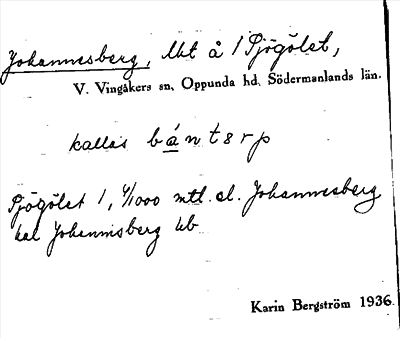 Johannesberg, lht å 1 Sjögölet,
V. Vingåkers sn, Oppunda hd. Södermanlands län.
kallas bántsrp
Sjögölet 1, 4/1000 mtl. el. Johannesberg
kal Johannisberg
Karin Bergström 1936.